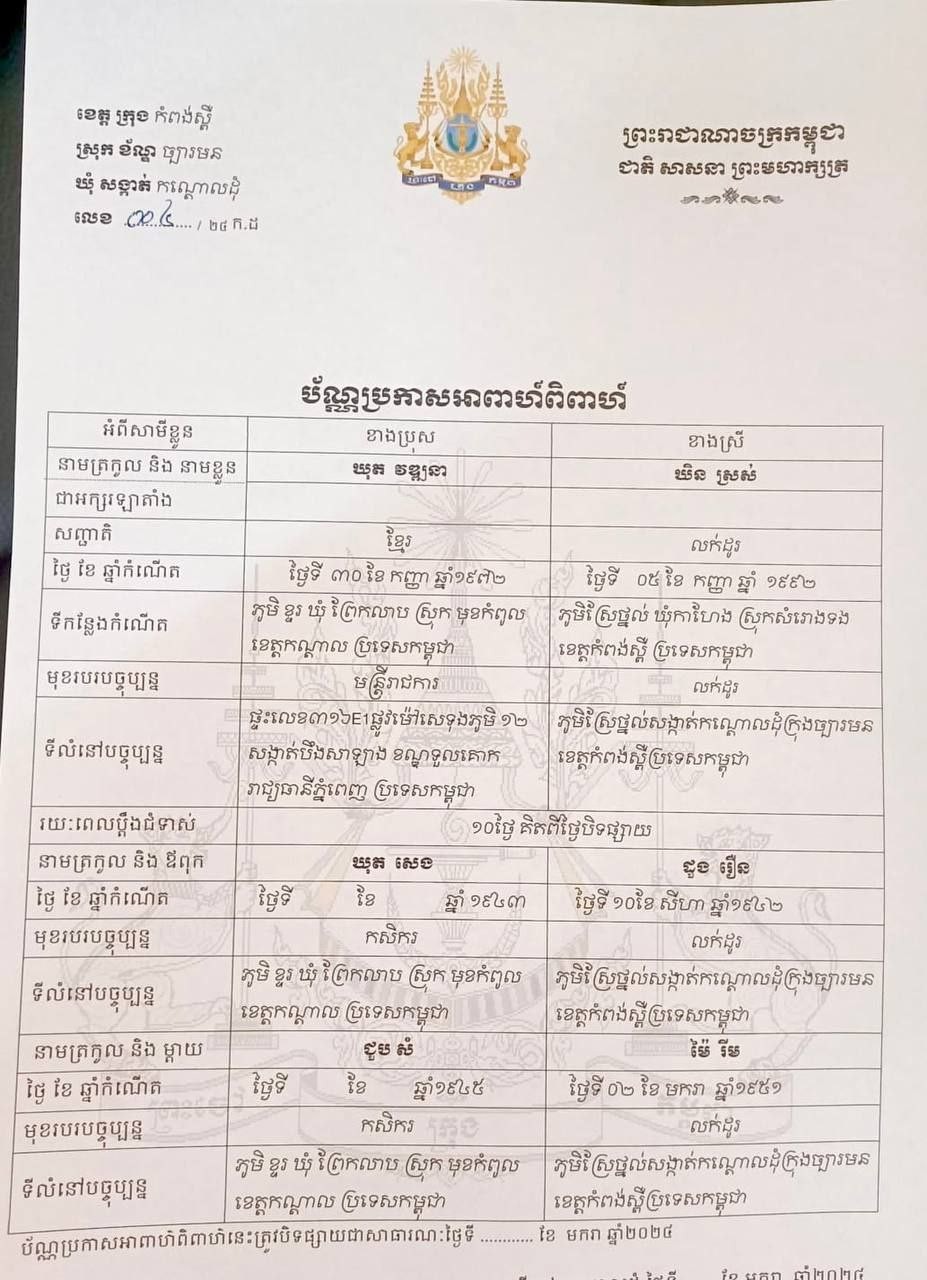 ខេត្ត ក្រុង កំពង់ស្ពឺ
ស្រុក ខ័ណ្ឌ ច្បារមន
ឃុំ សង្កាត់ កណ្ដោលដុំ
លេខ ............... / ២៤ ក.ដ
ព្រះរាជាណាចក្រកម្ពុជា
ជាតិ សាសនា ព្រះមហាក្សត្រ
ប័ណ្ណប្រកាសអាពាហ៍ពិពាហ៍
អំពីសាមីខ្លួន ខាងប្រុស ខាងស្រី
នាមត្រកូល និង នាមខ្លួន ឃុត វឌ្ឍនា ឃិន ស្រស់
ជាអក្សរឡាតាំង
សញ្ជាតិ ខ្មែរ លក់ដូរ
ថ្ងៃ ខែ ឆ្នាំកំណើត ថ្ងៃទី ៣០ ខែ កញ្ញា ឆ្នាំ១៩៧២ ថ្ងៃទី ០៥ ខែ កញ្ញា ឆ្នាំ ១៩៩២
ទីកន្លែងកំណើត ភូមិ ខ្ទរ ឃុំ ព្រែកលាប ស្រុក មុខកំពូល ភូមិស្រែថ្នល់ ឃុំកាហែង ស្រុកសំរោងទង
ខេត្តកណ្ដាល ប្រទេសកម្ពុជា ខេត្តកំពង់ស្ពឺ ប្រទេសកម្ពុជា
មុខរបរបច្ចុប្បន្ន មន្ត្រីរាជការ លក់ដូរ
ផ្ទះលេខ៣១៦E1ផ្លូវម៉ៅសេទុងភូមិ ១២ ភូមិស្រែថ្នល់សង្កាត់កណ្ដោលដុំក្រុងច្បារមន
ទីលំនៅបច្ចុប្បន្ន សង្កាត់បឹងសាឡាង ខណ្ឌទួលគោក ខេត្តកំពង់ស្ពឺប្រទេសកម្ពុជា
រាជ្យធានីភ្នំពេញ ប្រទេសកម្ពុជា
រយៈពេលប្ដឹងជំទាស់ ១០ថ្ងៃ គិតពីថ្ងៃបិទផ្សាយ
នាមត្រកូល និង ឪពុក ឃុត សេង ដួង រឿន
ថ្ងៃ ខែ ឆ្នាំកំណើត ថ្ងៃទី ខែ ឆ្នាំ ១៩៤៣ ថ្ងៃទី ១០ខែ សីហា ឆ្នាំ១៩៤២
មុខរបរបច្ចុប្បន្ន កសិករ លក់ដូរ
ទីលំនៅបច្ចុប្បន្ន ភូមិ ខ្ទរ ឃុំ ព្រែកលាប ស្រុក មុខកំពូល ភូមិស្រែថ្នល់សង្កាត់កណ្ដោលដុំក្រុងច្បារមន
ខេត្តកណ្ដាល ប្រទេសកម្ពុជា ខេត្តកំពង់ស្ពឺប្រទេសកម្ពុជា
នាមត្រកូល និង ម្ដាយ ជួប សំ ម៉ៃ រីម
ថ្ងៃ ខែ ឆ្នាំកំណើត ថ្ងៃទី ខែ ឆ្នាំ១៩៤៥ ថ្ងៃទី ០២ ខែ មករា ឆ្នាំ១៩៥១
មុខរបរបច្ចុប្បន្ន កសិករ លក់ដូរ
ទីលំនៅបច្ចុប្បន្ន ភូមិ ខ្ទរ ឃុំ ព្រែកលាប ស្រុក មុខកំពូល ភូមិស្រែថ្នល់សង្កាត់កណ្ដោលដុំក្រុងច្បារមន
ខេត្តកណ្ដាល ប្រទេសកម្ពុជា ខេត្តកំពង់ស្ពឺប្រទេសកម្ពុជា
ប័ណ្ណប្រកាសអាពាហ៍ពិពាហ៍នេះត្រូវបិទផ្សាយជាសាធារណៈថ្ងៃទី ............ ខែ មករា ឆ្នាំ២០២៤
ខែ មករា ឆ្នាំ២០២៤